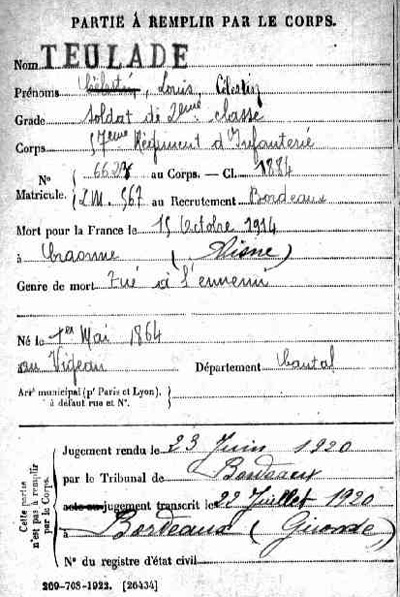 PARTIE À REMPLIR PAR LE CORPS.
Nom TEULADE
Prénoms Célestin, Louis, Célestin
Grade Soldat de 2ème classe
Corps 57ème Régiment d'Infanterie
N° 6627 au Corps. — Cl. 1884
Matricule. L.M. 567 au Recrutement Bordeaux
Mort pour la France le 15 Octobre 1914
à Craonne (Aisne)
Genre de mort Tué à l'ennemi
Né le 1er Mai 1864
au Vigean Département Cantal
Arrt municipal (pr Paris et Lyon),
à défaut rue et N°.
Cette partie n'est pas à remplir par le Corps.
Jugement rendu le 23 Juin 1920
par le Tribunal de Bordeaux
acte ou jugement transcrit le 22 Juillet 1920
à Bordeaux (Gironde)
N° du registre d'état civil
269-708-1922. [26434]